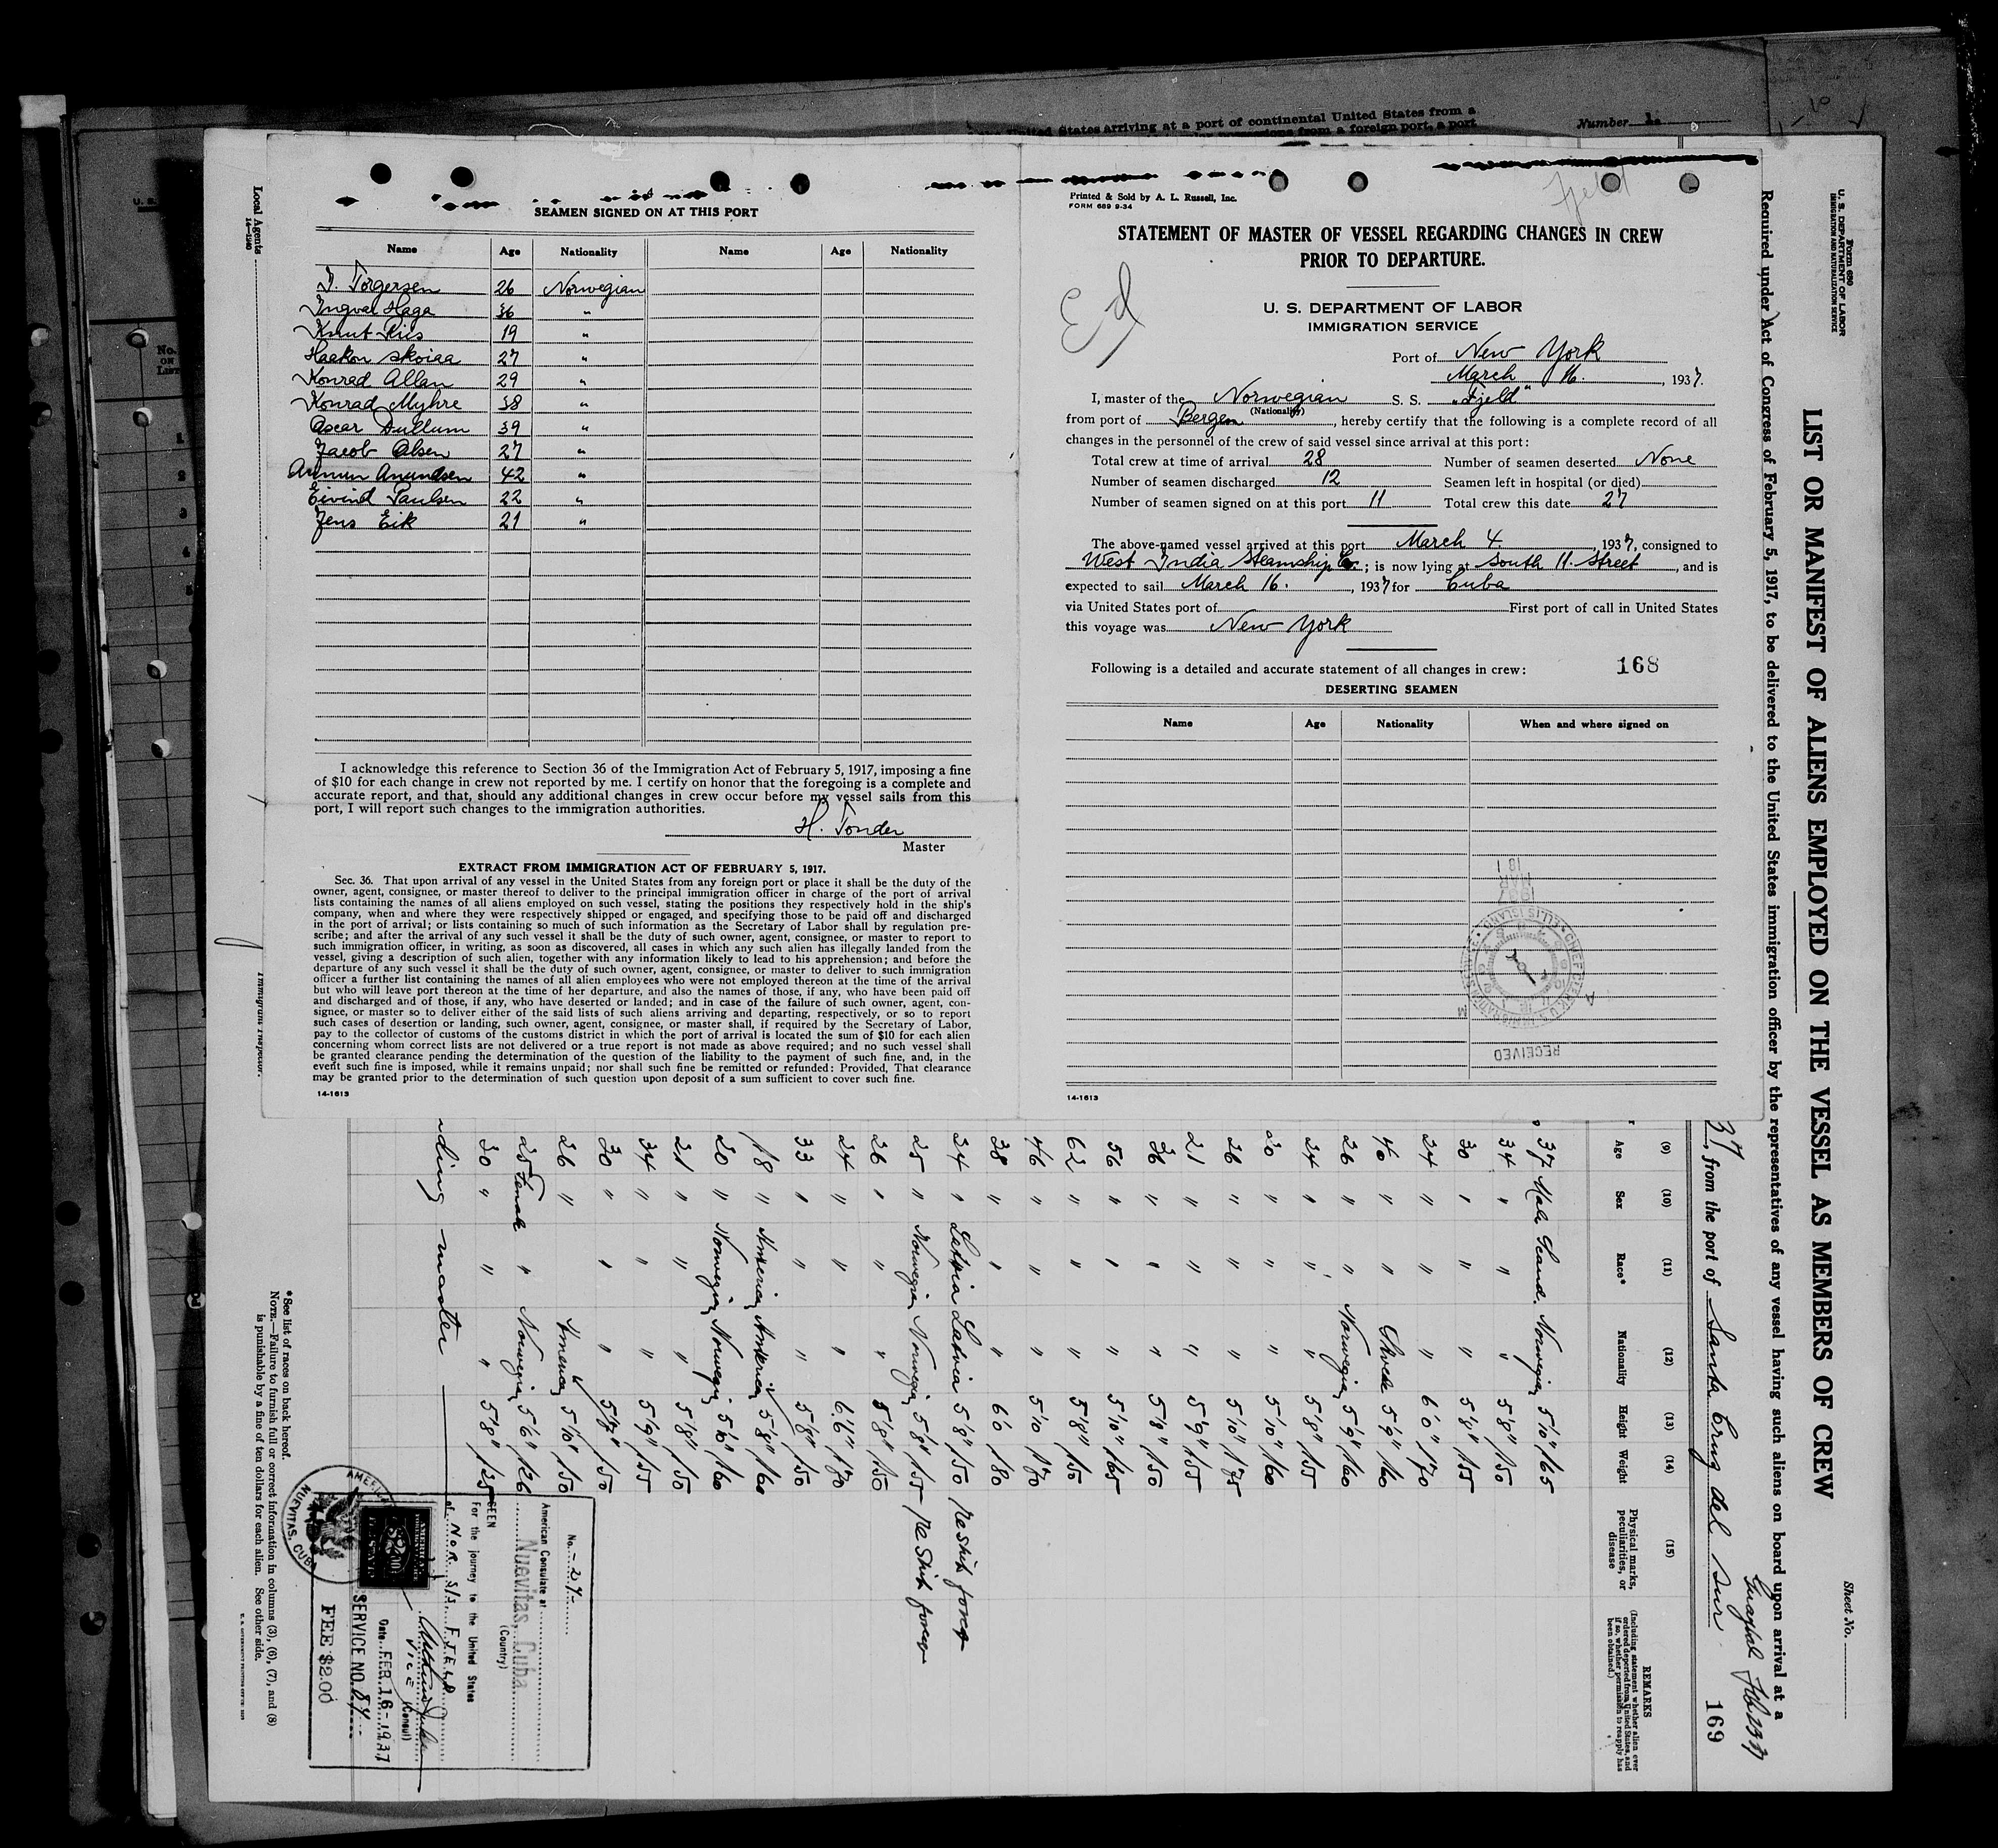 United States arriving at a port of continental United States from a
possessions from a foreign port, a port
Number 1
Local Agents
14-1940
SEAMEN SIGNED ON AT THIS PORT
Name Age Nationality Name Age Nationality
T. Torgersen 26 Norwegian
Ingvar Haga 36 "
Knut Riis 19 "
Haakon Skoiaa 27 "
Konrad Allan 29 "
Konrad Myhre 38 "
Oscar Dullum 39 "
Jacob Olsen 27 "
Anundsen 42 "
Eivind Paulsen 22 "
Jens Eik 21 "
I acknowledge this reference to Section 36 of the Immigration Act of February 5, 1917, imposing a fine
of $10 for each change in crew not reported by me. I certify on honor that the foregoing is a complete and
accurate report, and that, should any additional changes in crew occur before my vessel sails from this
port, I will report such changes to the immigration authorities.
H. Tonder
Master
EXTRACT FROM IMMIGRATION ACT OF FEBRUARY 5, 1917.
Sec. 36. That upon arrival of any vessel in the United States from any foreign port or place it shall be the duty of the
owner, agent, consignee, or master thereof to deliver to the principal immigration officer in charge of the port of arrival
lists containing the names of all aliens employed on such vessel, stating the positions they respectively hold in the ship's
company, when and where they were respectively shipped or engaged, and specifying those to be paid off and discharged
in the port of arrival; or lists containing so much of such information as the Secretary of Labor shall by regulation pre-
scribe; and after the arrival of any such vessel it shall be the duty of such owner, agent, consignee, or master to report to
such immigration officer, in writing, as soon as discovered, all cases in which any such alien has illegally landed from the
vessel, giving a description of such alien, together with any information likely to lead to his apprehension; and before the
departure of any such vessel it shall be the duty of such owner, agent, consignee, or master to deliver to such immigration
officer a further list containing the names of all alien employees who were not employed thereon at the time of the arrival
but who will leave port thereon at the time of her departure, and also the names of those, if any, who have been paid off
and discharged and of those, if any, who have deserted or landed; and in case of the failure of such owner, agent, con-
signee, or master so to deliver either of the said lists of such aliens arriving and departing, respectively, or so to report
such cases of desertion or landing, such owner, agent, consignee, or master shall, if required by the Secretary of Labor,
pay to the collector of customs of the customs district in which the port of arrival is located the sum of $10 for each alien
concerning whom correct lists are not delivered or a true report is not made as above required; and no such vessel shall
be granted clearance pending the determination of the question of the liability to the payment of such fine, and, in the
event such fine is imposed, while it remains unpaid; nor shall such fine be remitted or refunded: Provided, That clearance
may be granted prior to the determination of such question upon deposit of a sum sufficient to cover such fine.
14-1613
Immigrant Inspector.
Fjeld
Printed & Sold by A. L. Russell, Inc.
FORM 689 9-34
STATEMENT OF MASTER OF VESSEL REGARDING CHANGES IN CREW
PRIOR TO DEPARTURE.
Ed
U. S. DEPARTMENT OF LABOR
IMMIGRATION SERVICE
Port of New York
March 16. , 1937.
I, master of the Norwegian S. S. "Fjeld"
(Nationality)
from port of Bergen, hereby certify that the following is a complete record of all
changes in the personnel of the crew of said vessel since arrival at this port:
Total crew at time of arrival 28 Number of seamen deserted None
Number of seamen discharged 12 Seamen left in hospital (or died)
Number of seamen signed on at this port 11 Total crew this date 27
The above-named vessel arrived at this port March 4, 1937, consigned to
West India Steamship Co.; is now lying at South 11. Street, and is
expected to sail March 16. , 1937 for Cuba
via United States port of First port of call in United States
this voyage was New York
Following is a detailed and accurate statement of all changes in crew:
168
DESERTING SEAMEN
Name Age Nationality When and where signed on
RECEIVED
14-1613
Form 680
U. S. DEPARTMENT OF LABOR
IMMIGRATION AND NATURALIZATION SERVICE
Sheet No.
LIST OR MANIFEST OF ALIENS EMPLOYED ON THE VESSEL AS MEMBERS OF CREW
Required under Act of Congress of February 5, 1917, to be delivered to the United States immigration officer by the representatives of any vessel having such aliens on board upon arrival at a
37, from the port of Santa Cruz del Sur
169
(9) (10) (11) (12) (13) (14) (15)
Age Sex Race* Nationality Height Weight Physical marks, peculiarities, or disease
REMARKS
(Including statement whether alien ever ordered deported from United States, and if so, whether permission to reapply has been obtained.)
37 Male Scand. Norwegian 5'10" 165
34 " " " 5'8" 150
30 " " " 5'8" 155
24 " " " 6'0" 170
40 " " Swede 5'9" 160
26 " " Norwegian 5'9" 160
24 " " " 5'8" 155
20 " " " 5'10" 160
26 " " " 5'10" 175
21 " " " 5'9" 155
36 " " " 5'8" 150
56 " " " 5'10" 165
62 " " " 5'8" 150
46 " " " 5'10 170
38 " " " 6'0 180
34 " Latvia Latvia 5'8" 150 Reship foreg
25 " Norwegian Norwegian 5'8" 155 Reship foreg
26 " " " 5'8" 150
24 " " " 6'1" 170
33 " " " 5'8" 150
18 " American American 5'8" 160
20 " Norwegian Norwegian 5'10" 160
21 " " " 5'8" 150
34 " " " 5'9" 155
30 " " " 5'7" 150
26 " " American 5'10" 150
25 Female " Norwegian 5'6" 126
30 " " " 5'8" 125
nding master
*See list of races on back hereof.
NOTE.—Failure to furnish full or correct information in columns (3), (6), (7), and (8)
is punishable by a fine of ten dollars for each alien. See other side.
No. -24-
American Consulate at
Nuevitas, Cuba
(Country)
SEEN
For the journey to the United States
of NOR. S/S FJELD
VICE (Consul)
Date FEB. 16-1937
SERVICE NO. 84
FEE $2.00
NUEVITAS, CUBA